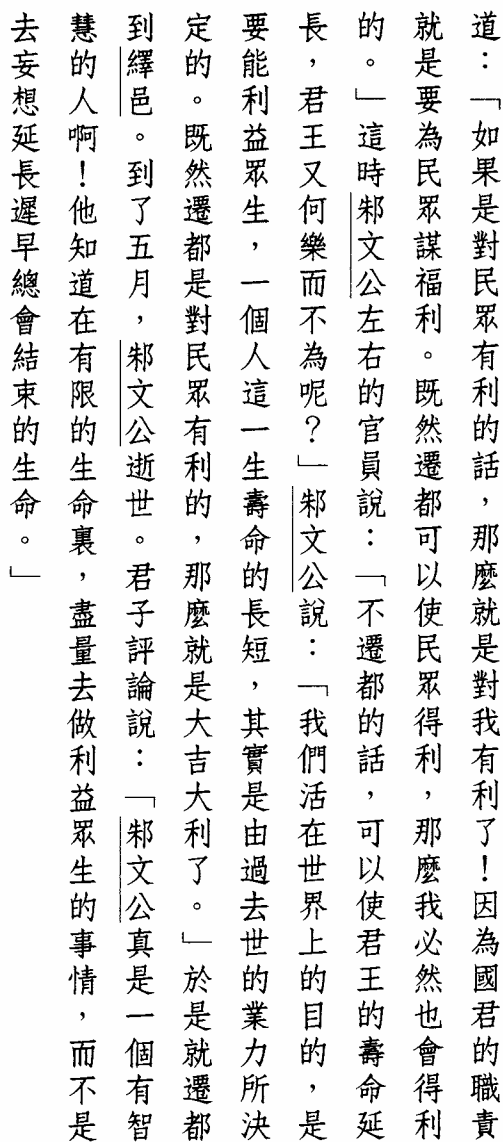 道：「如果是對民眾有利的話，那麼就是對我有利了！因為國君的職責
就是要為民眾謀福利。既然遷都可以使民眾得利，那麼我必然也會得利
的。」這時邾文公左右的官員說：「不遷都的話，可以使君王的壽命延
長，君王又何樂而不為呢？」邾文公說：「我們活在世界上的目的，是
要能利益眾生，一個人這一生壽命的長短，其實是由過去世的業力所決
定的。既然遷都是對民眾有利的，那麼就是大吉大利了。」於是就遷都
到繹邑。到了五月，邾文公逝世。君子評論說：「邾文公真是一個有智
慧的人啊！他知道在有限的生命裏，盡量去做利益眾生的事情，而不是
去妄想延長遲早總會結束的生命。」